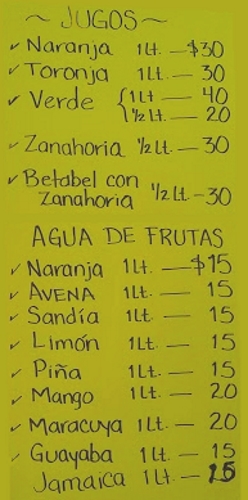 ~ JUGOS ~
✓ Naranja 1 Lt. — $30
✓ Toronja 1 Lt. — 30
✓ Verde { 1 Lt — 40
½ Lt. — 20
✓ Zanahoria ½ Lt. — 30
✓ Betabel con
Zanahoria ½ Lt - 30
AGUA DE FRUTAS
✓ Naranja 1 Lt. — $15
✓ AVENA 1 Lt. — 15
✓ Sandía 1 Lt. — 15
✓ Limón 1 Lt. — 15
✓ Piña 1 Lt. — 15
✓ Mango 1 Lt. — 20
✓ Maracuya 1 Lt. — 20
✓ Guayaba 1 Lt — 15
Jamaica 1 Lt —